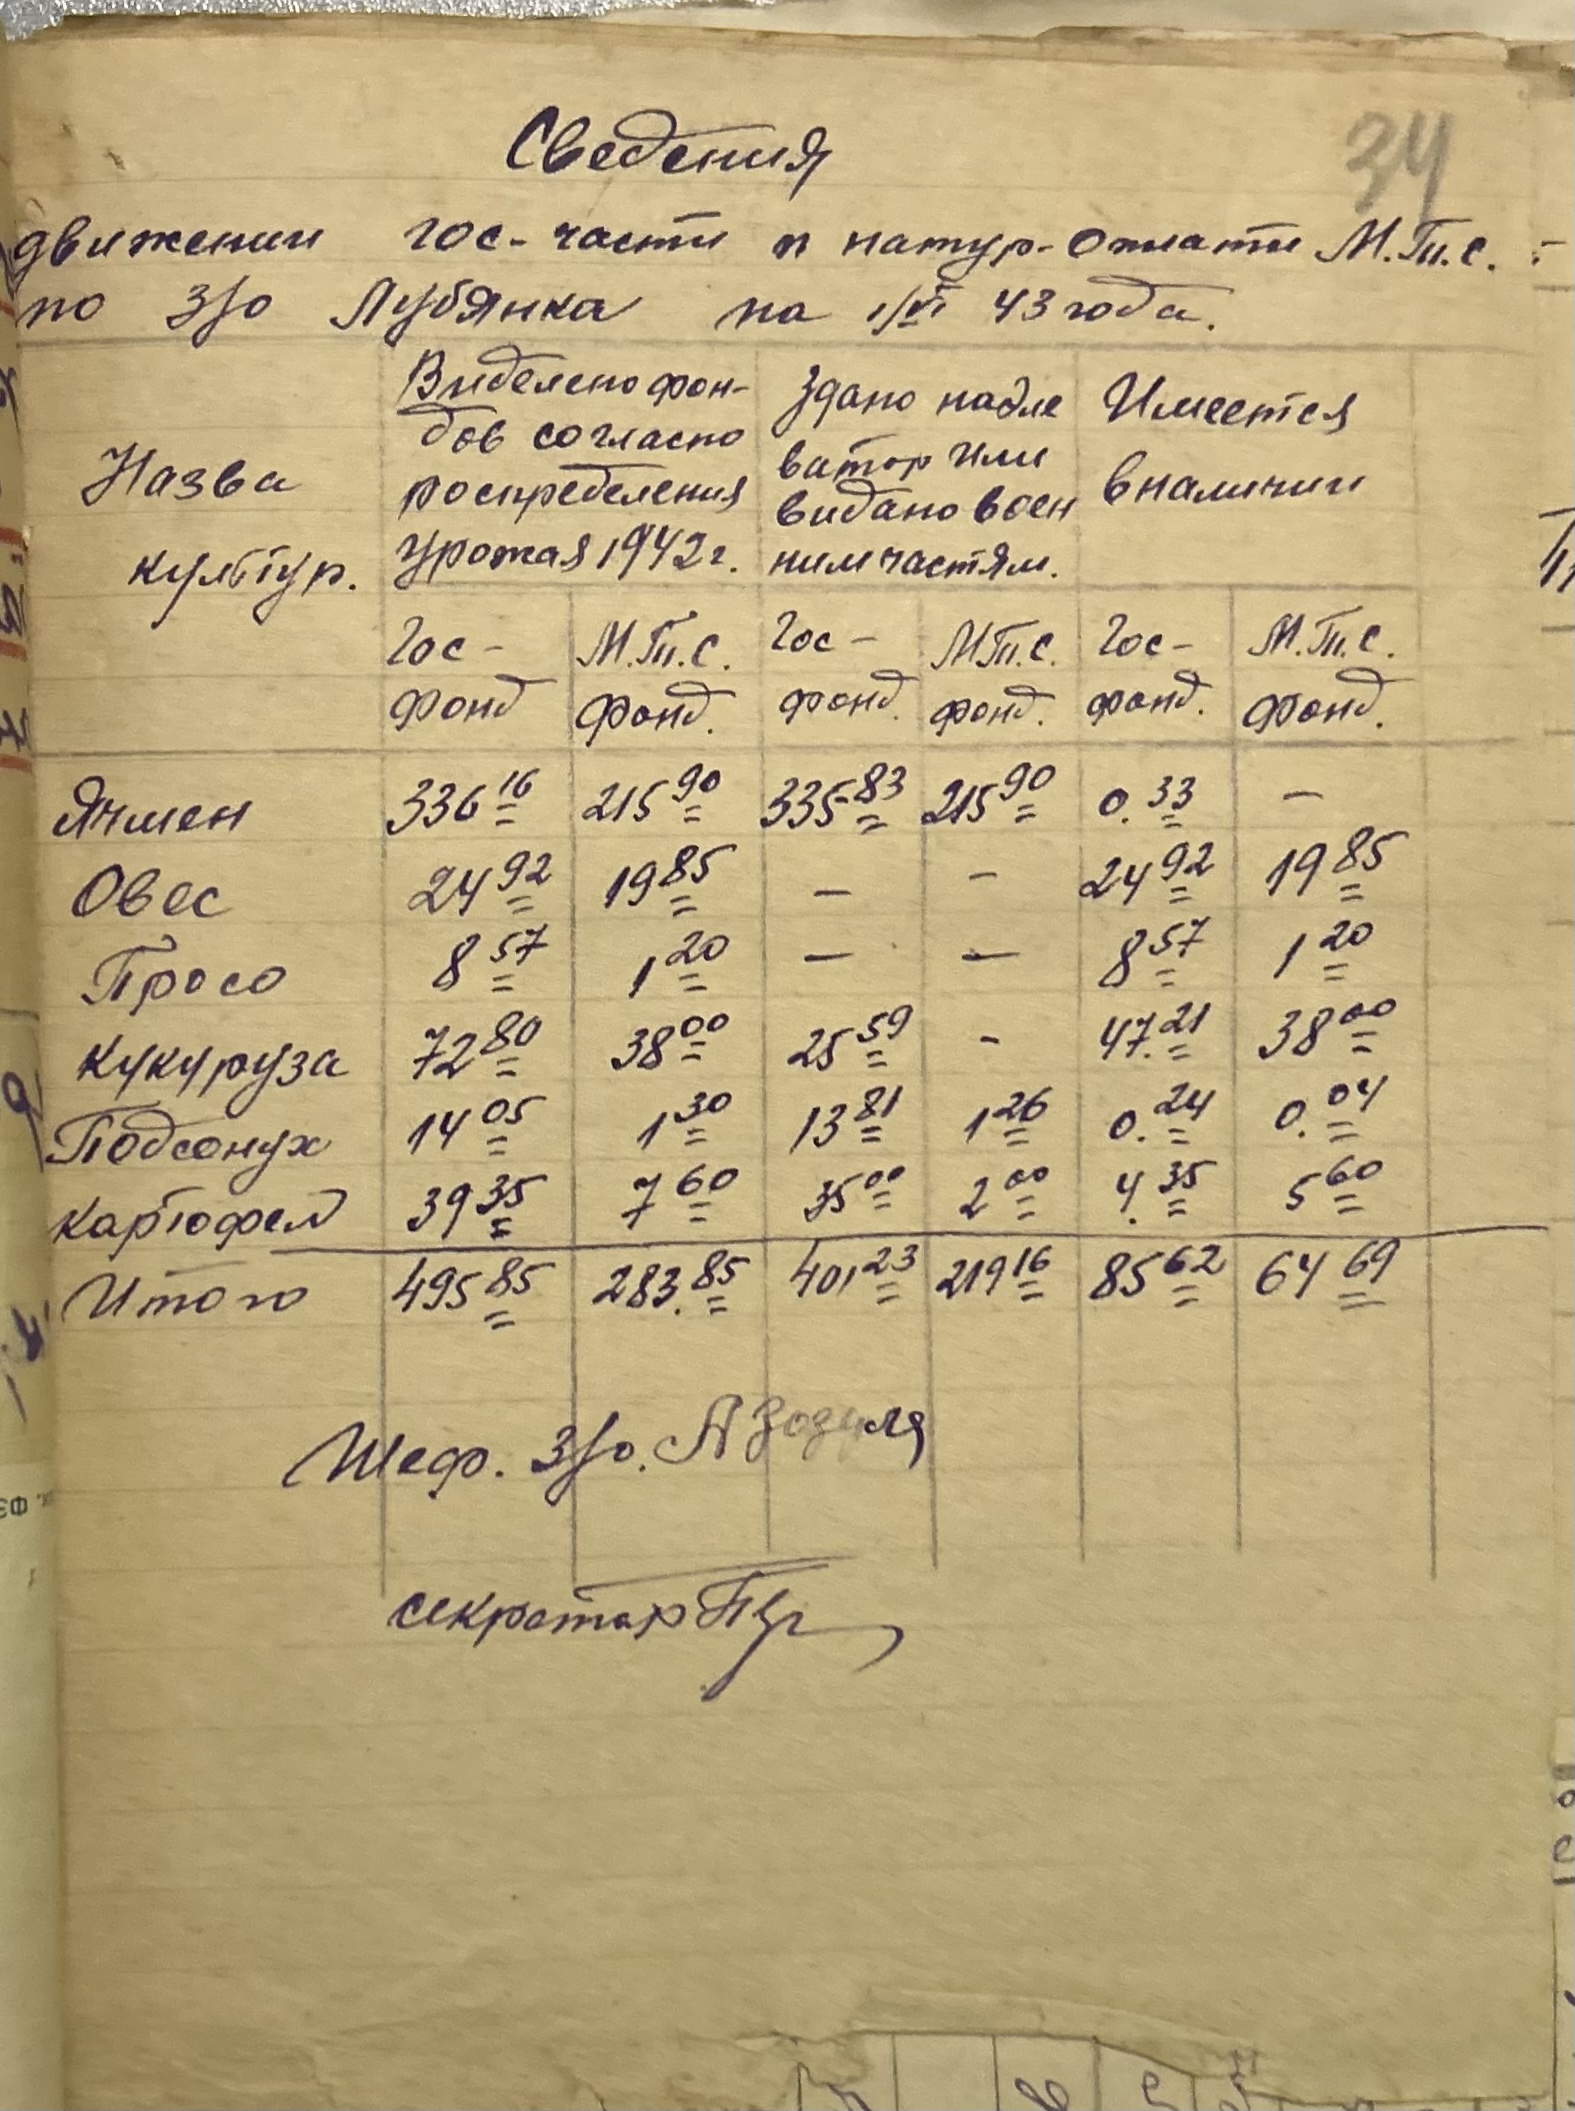 34
Сведения
движении гос-части и натур-оплати М.Т.С. -
по з/о Лубянка на 1/VI 43 года.
Назва култур.
Виделено фон-
дов согласно
роспределения
Урожая 1942 г.
Здано надле
ватор или
видано воен
ним частям.
Имеется
вналичии
Гос- фонд М.Т.С. фонд. Гос- фонд. М.Т.С. фонд. Гос- фонд. М.Т.С. фонд.
Ячмен 336 16 215 90 335 83 215 90 0. 33 -
Овес 24 92 19 85 - - 24 92 19 85
Просо 8 57 1 20 - - 8 57 1 20
Кукуруза 72 80 38 00 25 59 - 47. 21 38 00
Подсонух 14 05 1 30 13 81 1 26 0. 24 0. 04
Картофел 39 35 7 60 35 00 2 00 4. 35 5 60
Итого 495 85 283. 85 401 23 219 16 85 62 64 69
Шеф. з/о. А Зозуля
секретар